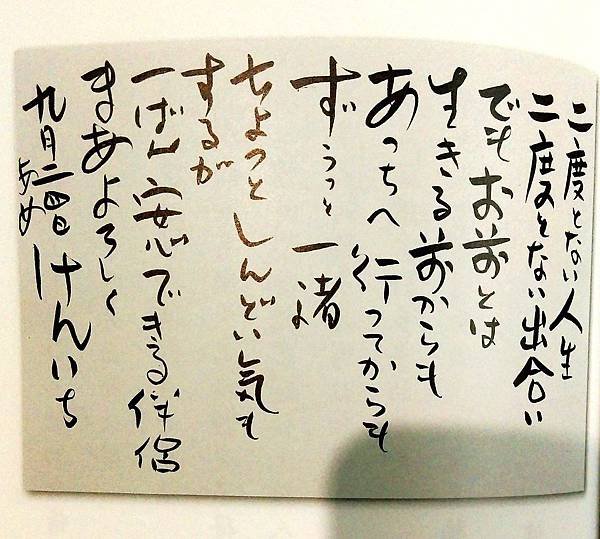 二度とない人生
二度とない出合い
でもお前とは
生きる前からも
あっちへ行ってからも
ずうっと一緒よ
ちょっとしんどい気も
するが
一ばん安心できる伴侶
まあよろしく
九月二四日 けんいち